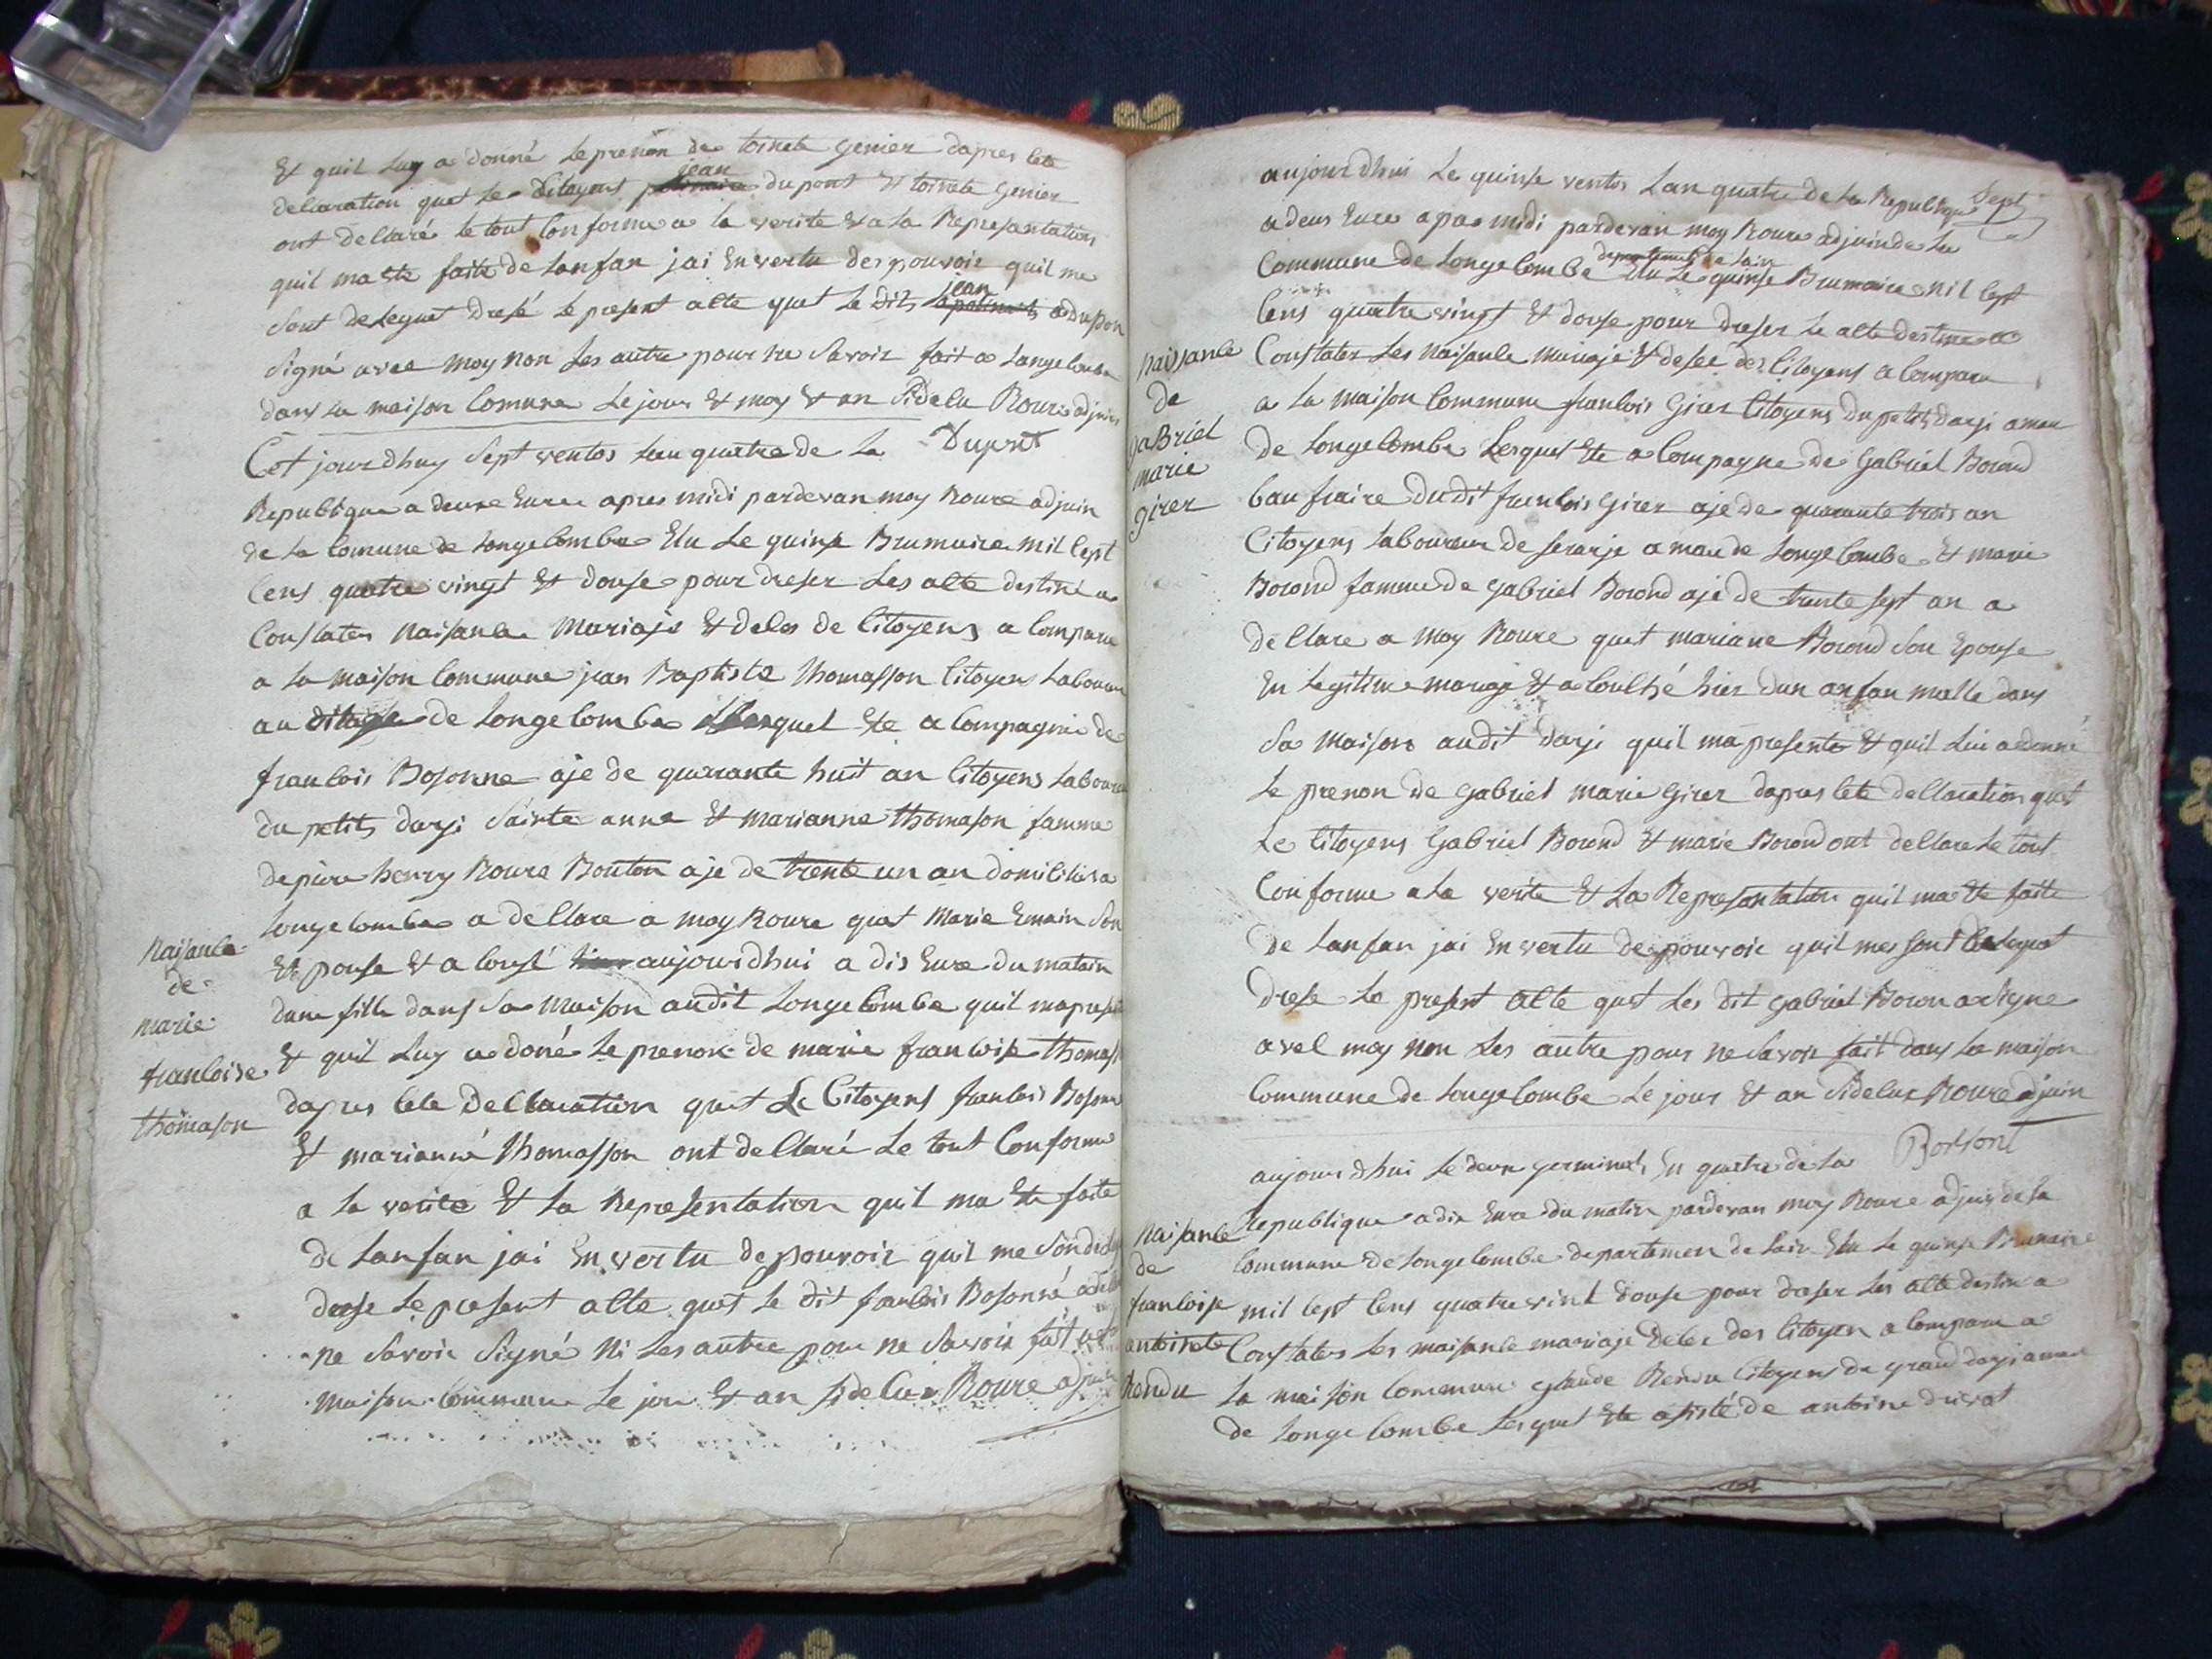 Et quil Luy a donné Le prenon de toinete Genier dapres lete
declaration quet Le Citoyens jean dupont Et toinete genier
ont dellaré le tout Conforme a la verite & a la Representation
quil ma Ete faite de Lanfan jai En vertu des pouvoir quil me
Sont deleguet Dresé Le present alte quet Le dits jean dupon
Signé avec moy non Les autre pour ne Savoir fait a Longelombe
dans la maison Comune Le jour & moy & an Sidelu Roure adjuin
Dupont
Cet jourdhuy Sept ventos Lan quatre de La
Republique a deuxe Eure apres midi pardevan moy Roure adjuin
de la Comune de Longelombe Elu Le quinse Brumaire mil Sept
Cens quatre vingt Et douse pour dreser Les alte destiné a
Constater Naisanle Mariaje Et deles de Citoyens a Compare
a La maison Commune jean Baptiste Thomasson Citoyen Laboureur
au de Longelombe Lesquel Ete a Compagnie de
franlois Bosonne aje de quarante huit an Citoyens Laboureur
du petits darji Sainte anne & marianne Thomason famme
de piere henry Roure Bouton aje de trente un an domilie a
Longelombe a dellare a moy Roure quet Marie Emain Son
Et pouse & a Cousé aujourdhui a dis Eure du matain
Naisanle
de
marie
franloise
Thomason
dune fille dans Sa Maison audit Longelombe quil ma presenté
& quil Luy a doné Le prenon de marie francoise Thomason
dapres lete Dellaration quet Le Citoyens franlois Bosonne
Et marianne Thomasson ont dellaré Le tout Conforme
a la verite Et La Representation quil ma Ete faite
de Lanfan jai En vertu de pouvoir quil me Son
drese Le present alte quet Le dit franlois Bosonné a
ne Savoir Signé Ni Les autre pour ne Savoir fait
Maison Commune Le jour & an Sidelu Roure adjuin
Sept
aujourdhui Le quinse ventos Lan quatre de La Republique
a deus Eure apas midi pardevan moy Roure adjuin de La
Commune de Longelombe departement de Lain Elu Le quinse Brumaire mil Sept
Cens quatre vingt Et douse pour dreser Le alte destine a
Constater Les Naisanle Mariaje & deses des Citoyens a Compare
a La Maison Commune franlois Girer Citoyens du petits darji amau
de Longelombe Lesquel Ete a Compagne de Gabriel Borond
bau fraire Dudit franlois Girer aje de quarante trois an
Citoyens Laboureur de serarje amau de Longelombe & marie
Borond famme de Gabriel Borond aje de trente Sept an a
dellare a moy Roure quet mariane Borond Son Epouse
En Legitime mariage & a Coulhé hier dun anfan malle dans
Sa Maison audit Darji quil ma presente & quil Lui a donné
Le prenon de Gabriel marie Girer dapres lete dellaration quet
Le Citoyens Gabriel Borond & marie Borond ont dellare Le tout
Conforme a La verite & La Representation quil ma Ete faite
de Lanfan jai En vertu de pouvoir quil mes Sont delequet
drese Le present alte quet Les dit Gabriel Boron a Signe
avel moy non Les autre pour ne Savoir fait dans La maison
Commune de Longelombe Le jour & an Sidelue Roure adjuin
Naisanle
de
gaBriel
marie
girer
Borsont
aujourdhui Le deuxe germinal En quatre de La
Republique a dix Eure du matin pardevan moy Roure adjuin de La
Commune de Longelombe departemen de Lain Elu Le quinse Brumaire
mil Sept Cens quatre vint douse pour dreser Les alte destine a
Constater Les Naisanle mariaje deles des Citoyen a Compare a
La maison Commune glaude Rendu Citoyens du grand darji amau
de Longelombe Lesquel Ete asisté de antoine druvot
Naisanle
de
franloise
antoinete
Rendu